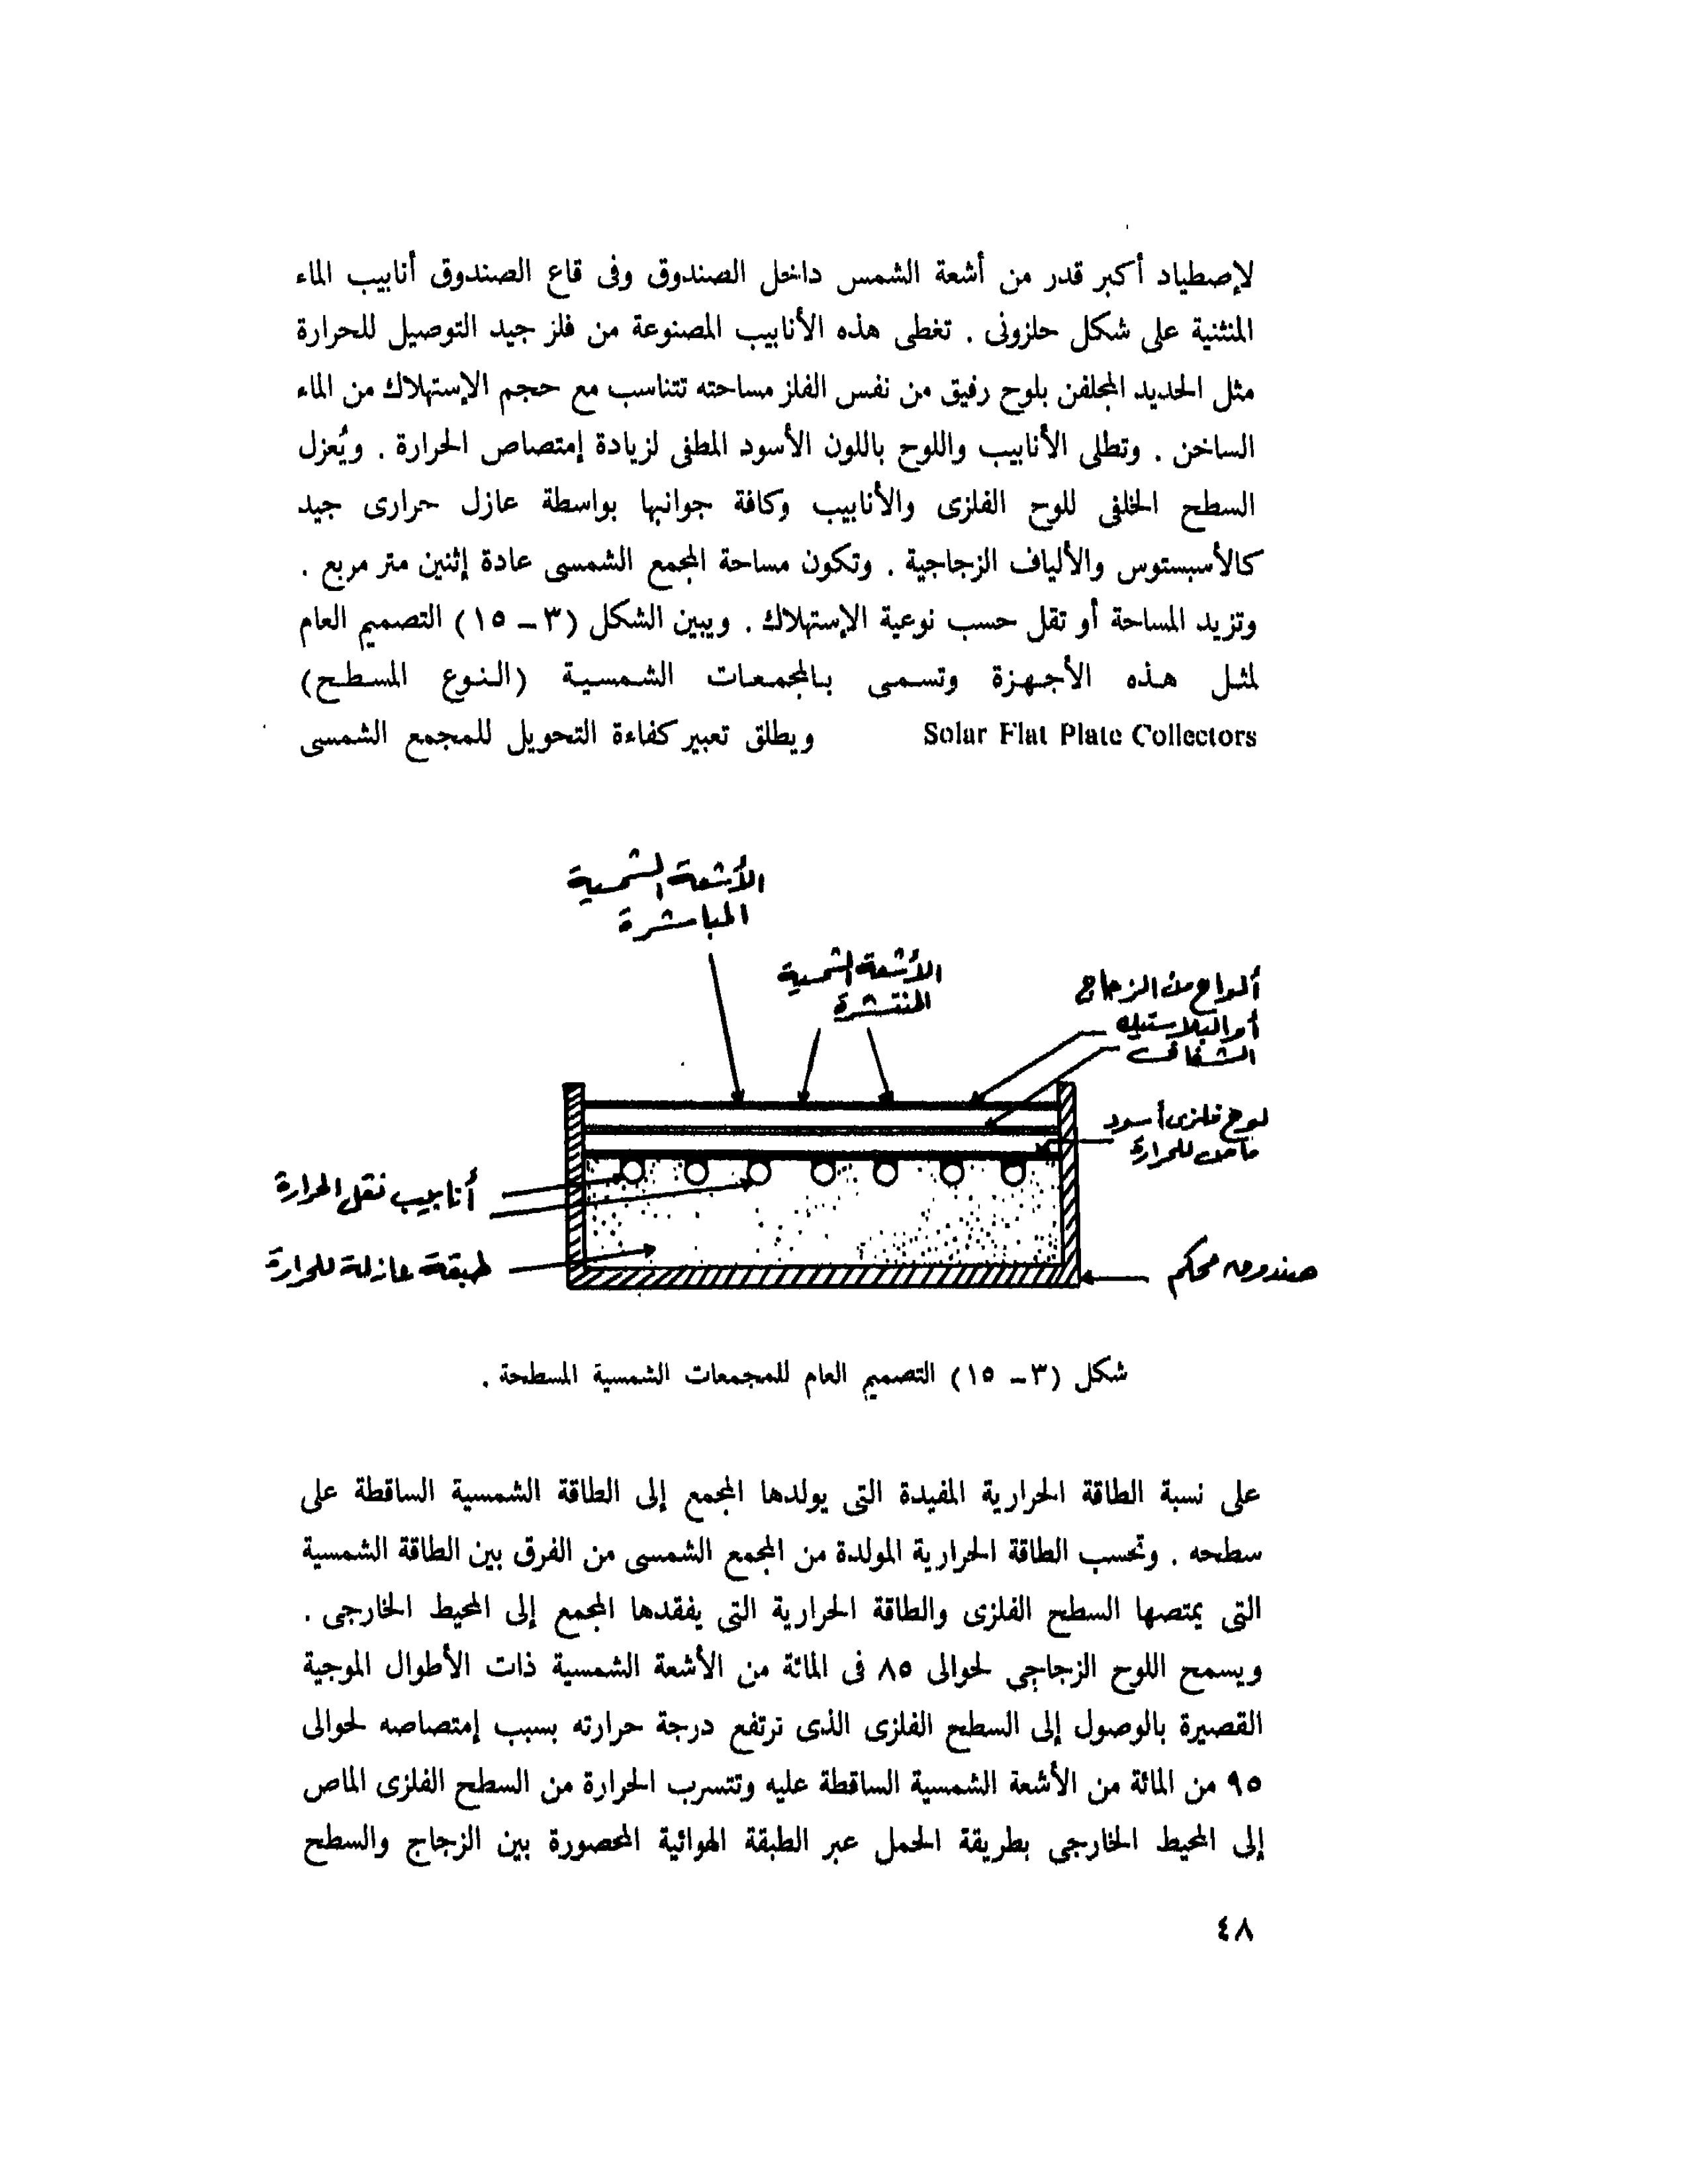 لإصطياد أكبر قدر من أشعة الشمس داخل الصندوق وفى قاع الصندوق أنابيب الماء
المنثنية على شكل حلزونى . تغطى هذه الأنابيب المصنوعة من فلز جيد التوصيل للحرارة
مثل الحديد المجلفن بلوح رفيق من نفس الفلز مساحته تتناسب مع حجم الإستهلاك من الماء
الساخن . وتطلى الأنابيب واللوح باللون الأسود المطفى لزيادة إمتصاص الحرارة . ويُعزل
السطح الخلفى للوح الفلزى والأنابيب وكافة جوانبها بواسطة عازل حرارى جيد
كالأسبستوس والألياف الزجاجية . وتكون مساحة المجمع الشمسى عادة إثنين متر مربع .
وتزيد المساحة أو تقل حسب نوعية الإستهلاك . ويبين الشكل (٣ – ١٥) التصميم العام
لمثل هذه الأجهزة وتسمى بالمجمعات الشمسية (النوع المسطح)
Solar Flat Plate Collectors ويطلق تعبير كفاءة التحويل للمجمع الشمسى
الأشعة الشمسية
المباشرة
الأشعة الشمسية
المنتشرة
ألواح من الزجاج
أو البلاستيك
الشفاف
لوح فلزى أسود
ماص للحرارة
أنابيب نقل الحرارة
طبقة عازلة للحرارة
صندوق محكم
شكل (٣ – ١٥) التصميم العام للمجمعات الشمسية المسطحة .
على نسبة الطاقة الحرارية المفيدة التى يولدها المجمع إلى الطاقة الشمسية الساقطة على
سطحه . وتحسب الطاقة الحرارية المولدة من المجمع الشمسى من الفرق بين الطاقة الشمسية
التى يمتصها السطح الفلزى والطاقة الحرارية التى يفقدها المجمع إلى المحيط الخارجى .
ويسمح اللوح الزجاجى لحوالى ٨٥ فى المائة من الأشعة الشمسية ذات الأطوال الموجية
القصيرة بالوصول إلى السطح الفلزى الذى ترتفع درجة حرارته بسبب إمتصاصه لحوالى
٩٥ من المائة من الأشعة الشمسية الساقطة عليه وتتسرب الحرارة من السطح الفلزى الماص
إلى المحيط الخارجى بطريقة الحمل عبر الطبقة الهوائية المحصورة بين الزجاج والسطح
٤٨